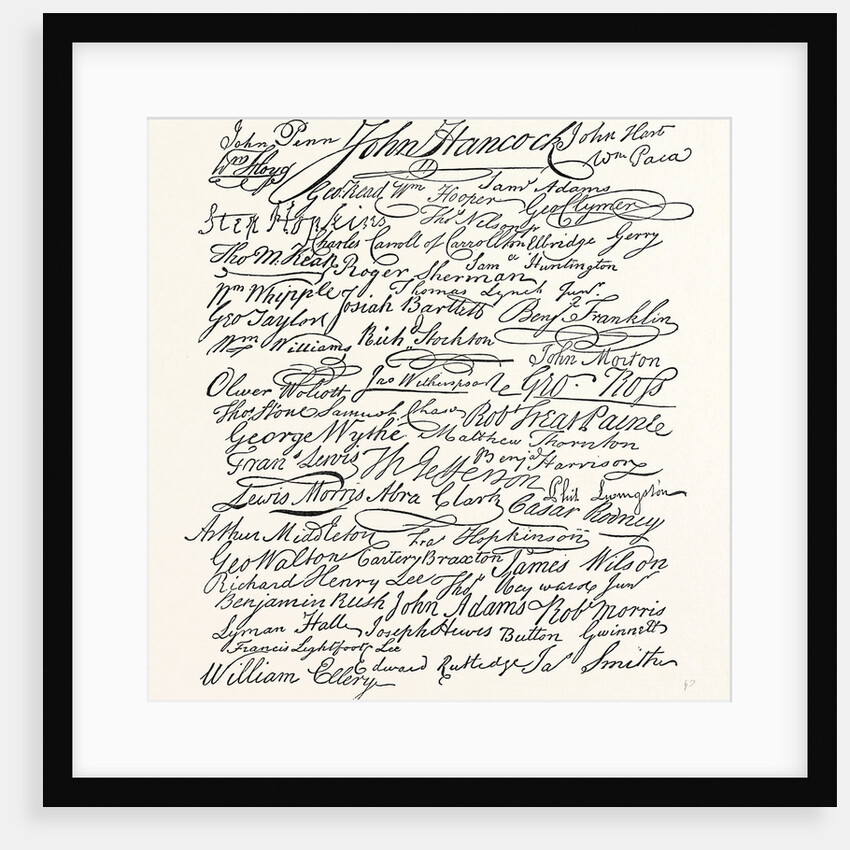 John Penn John Hancock John Hart
Wm Floyd Wm Paca
Geo. Read Wm Hooper Saml Adams
Step Hopkins Thos Nelson jr Geo Clymer
Charles Carroll of Carrollton Elbridge Gerry
Tho M. Kean Roger Sherman Sam el Huntington
Wm Whipple Thomas Lynch Junr.
Josiah Bartlett Benj Franklin
Geo Taylor
Wm Williams Richd Stockton
John Morton
Oliver Wolcott Jno Witherspoon Geo. Ross
Thos. Stone Samuel Chase Robt Treat Paine
George Wythe Matthew Thornton
Frans Lewis Th Jefferson Benja Harrison
Lewis Morris Abra Clark Phil. Livingston
Cæsar Rodney
Arthur Middleton Fra Hopkinson
Geo Walton Carter Braxton James Wilson
Richard Henry Lee Thos Heyward Junr
Benjamin Rush John Adams Robt Morris
Lyman Hall Joseph Hewes Button Gwinnett
Francis Lightfoot Lee
William Ellery Edward Rutledge Jas Smith